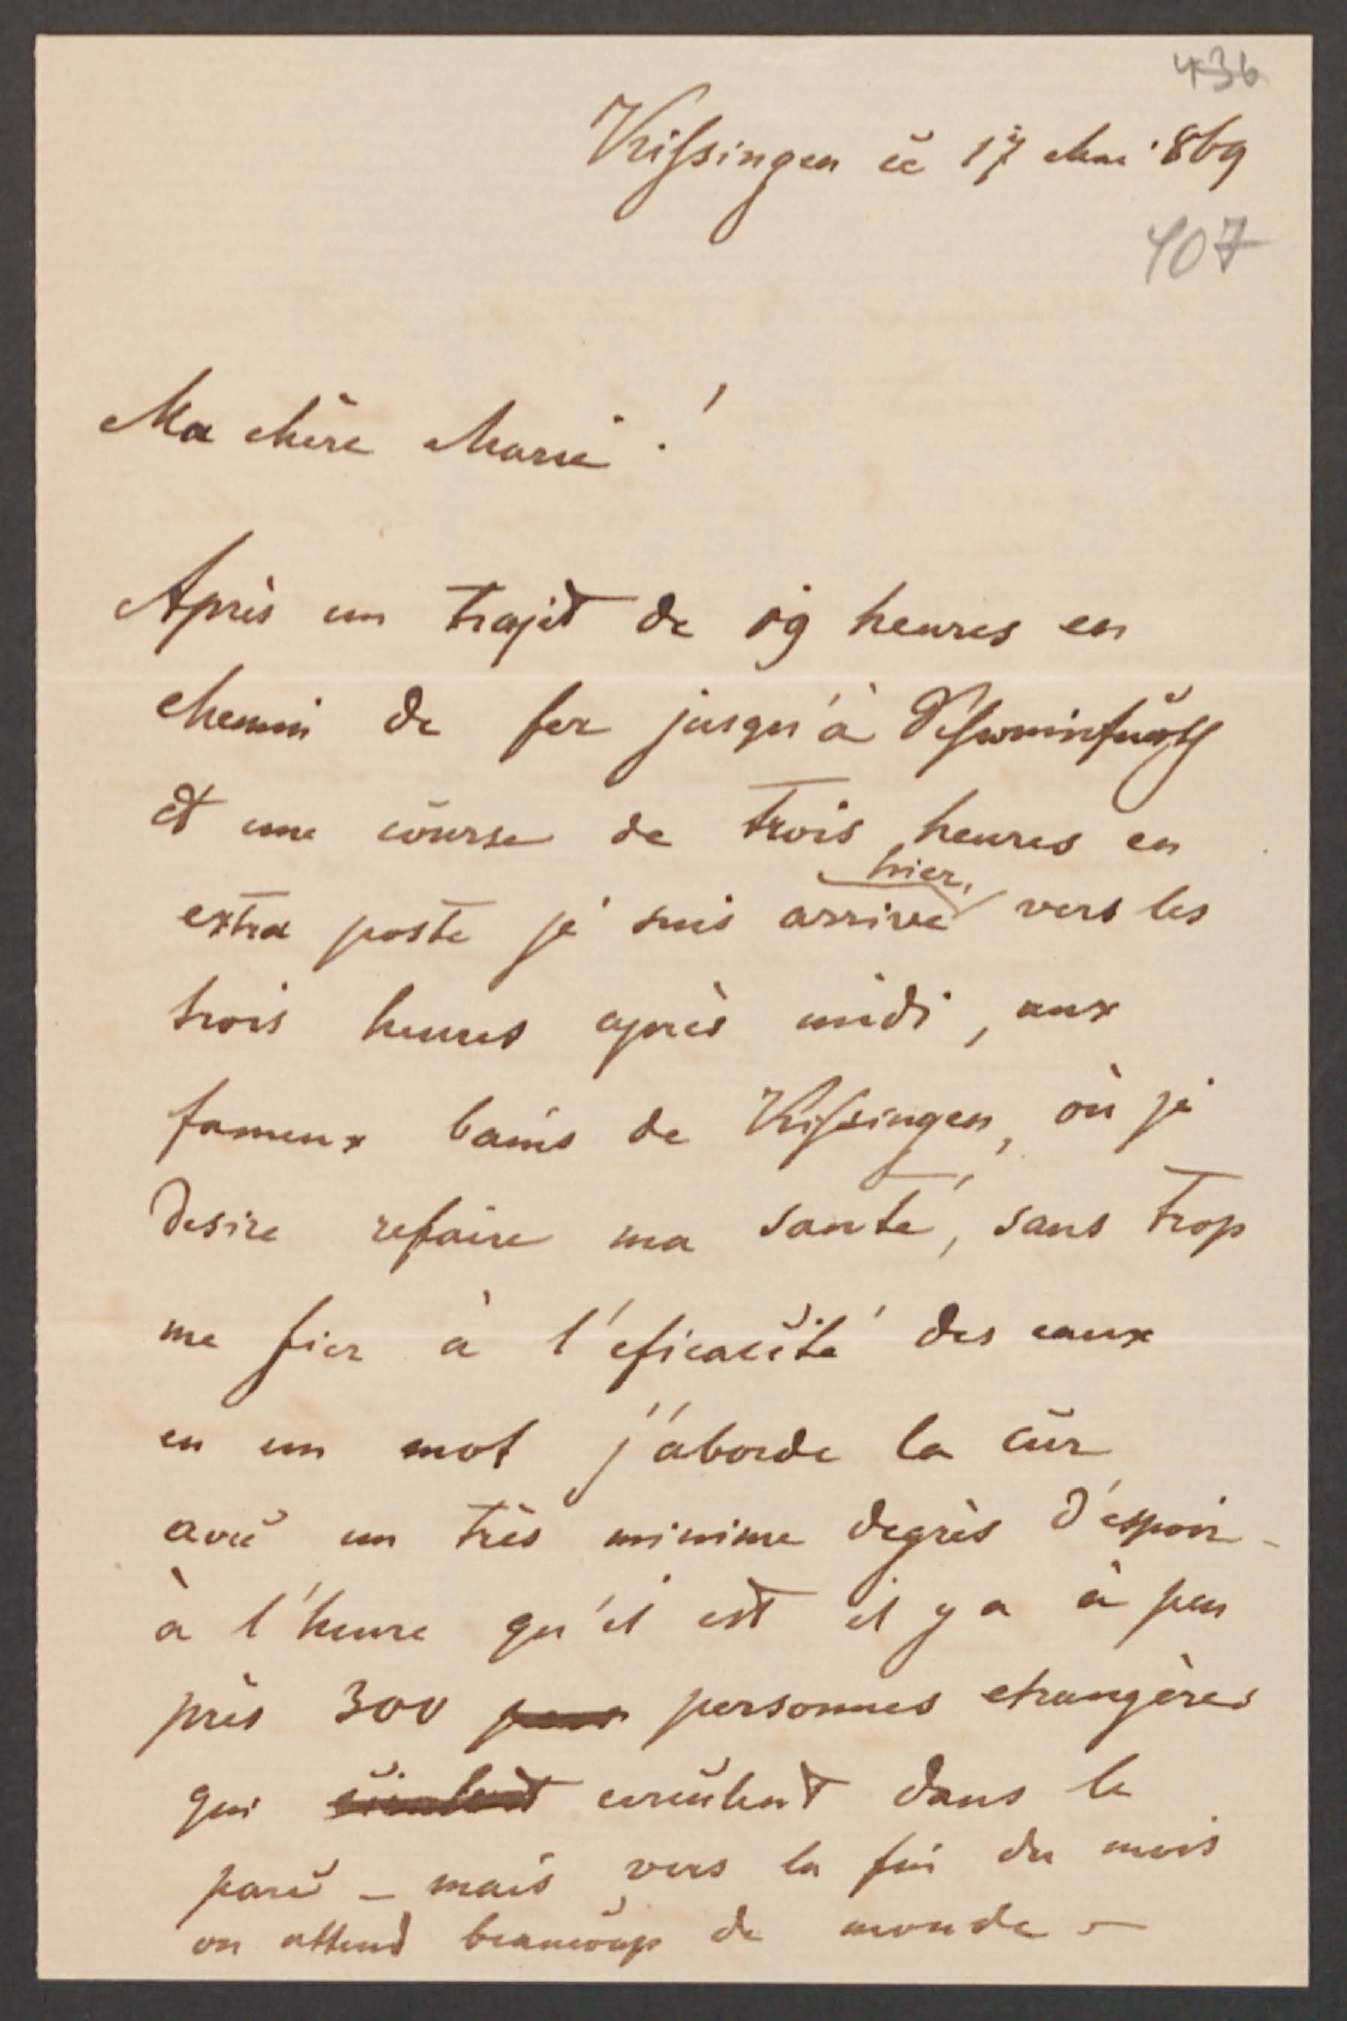 436
Kissingen ce 17 Mai 869
107
Ma chère Marie!
Après un trajet de 19 heures en
chemin de fer jusqu'à Schweinfurth
et une course de trois heures en
hier,
extra poste je suis arrivé vers les
trois heures après midi, aux
fameux bains de Kissingen, où je
desire refaire ma santé, sans trop
me fier à l'eficacité des eaux
en un mot j'aborde la cur
avec un très minime degrès d'espoir -
à l'heure qu'il est il y a à peu
près 300 personnes etrangères
qui circulent dans le
parc - mais vers la fin du mois
on attend beaucoup de monde -